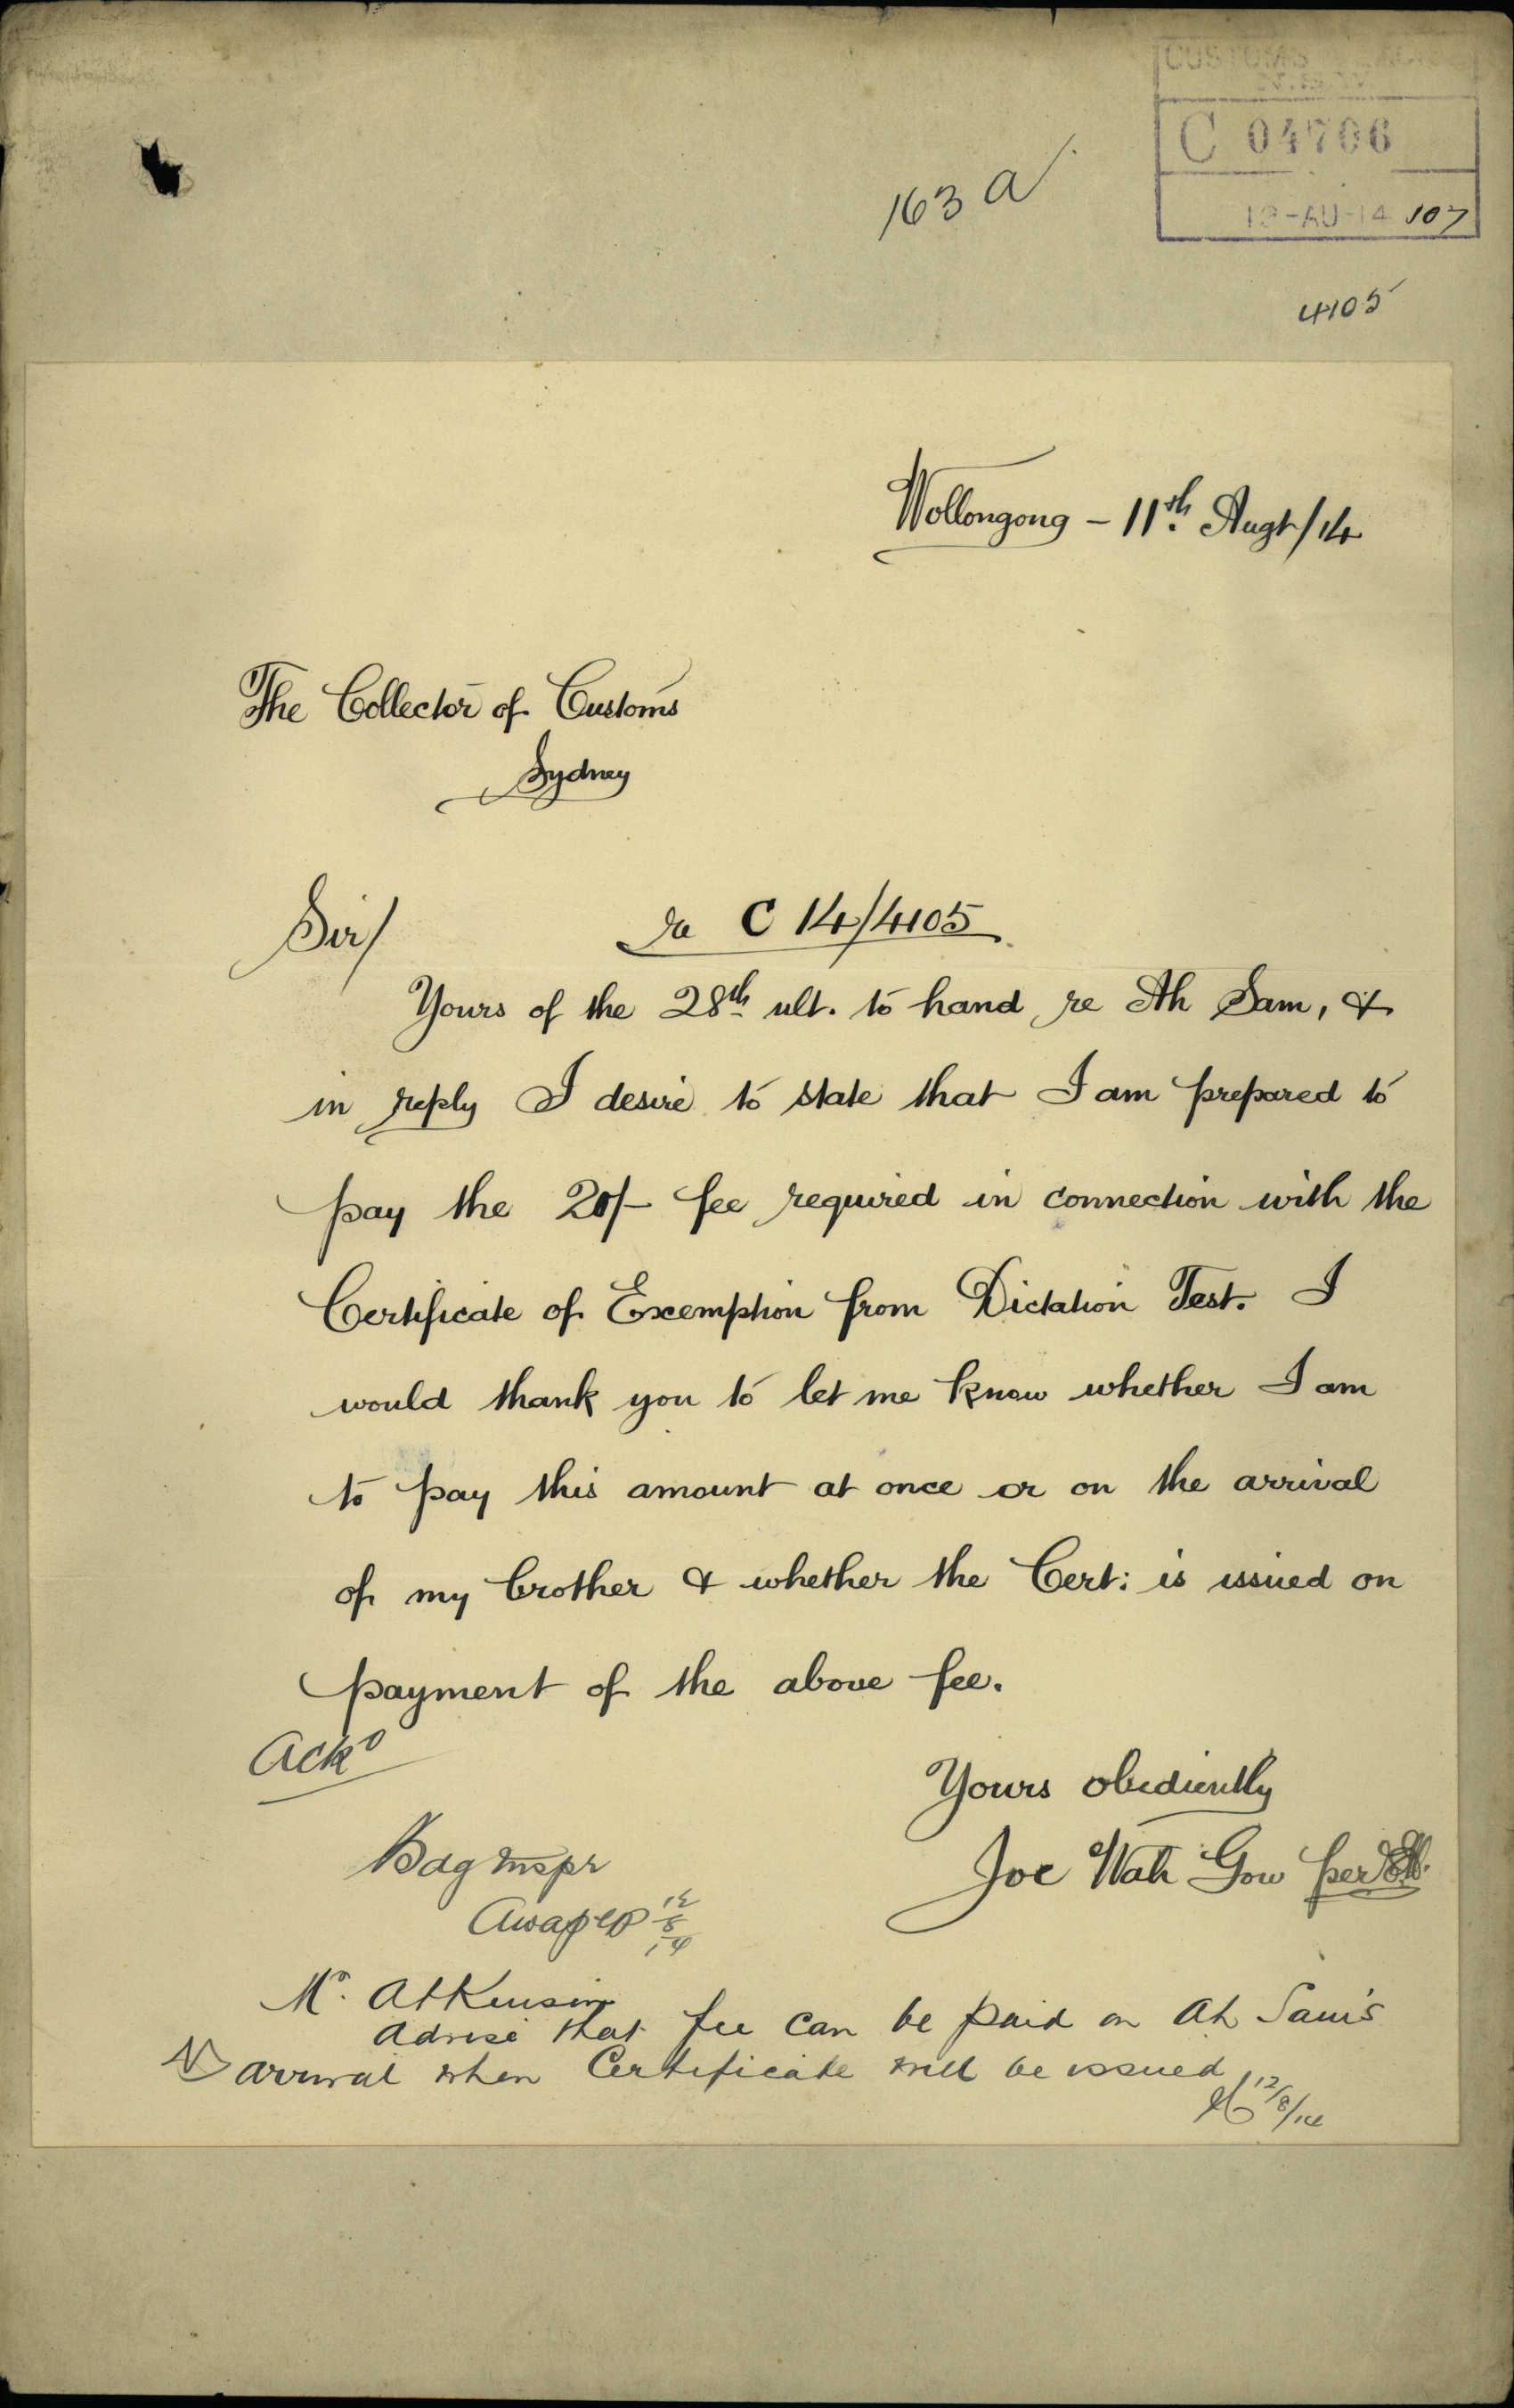 CUSTOMS
C 04706
12-AU-14 107
163 a
4105
Wollongong - 11th. Augt/14
The Collector of Customs
Sydney
Sir/ re C 14/4105
Yours of the 28th ult. to hand re Ah Sam, &
in reply I desire to state that I am prepared to
pay the 20/- fee required in connection with the
Certificate of Exemption from Dictation Test. I
would thank you to let me know whether I am
to pay this amount at once or on the arrival
of my brother & whether the Cert: is issued on
payment of the above fee.
Ackd
Yours obediently
Joe Wah Gow per
Bdg Inspr
12/8/14
Mr. Atkinson
Advise that fee can be paid on Ah Sam's
arrival when Certificate will be issued
12/8/14